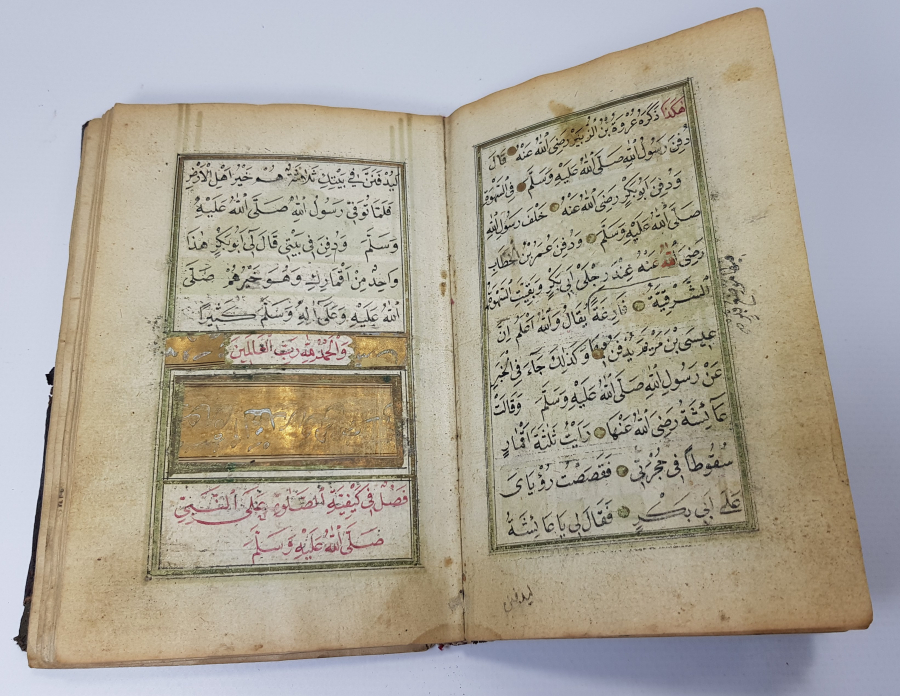 هَكَذَا ذَكَرَهُ عُرْوَةُ بْنُ الزُّبَيْرِ رَضِىَ اللهُ عَنْهُ قَالَ
دُفِنَ رَسُولُ اللهِ صَلَّى اللهُ عَلَيْهِ وَسَلَّمَ فِى السَّهْوَةِ
وَدُفِنَ اَبُو بَكْرٍ رَضِىَ اللهُ عَنْهُ خَلْفَ رَسُولِ اللهِ
صَلَّى اللهُ عَلَيْهِ وَسَلَّمَ وَدُفِنَ عُمَرُ بْنُ الْخَطَّابِ
رَضِىَ اللهُ عَنْهُ عِنْدَ رِجْلَىْ اَبِى بَكْرٍ وَبَقِيَتِ السَّهْوَةُ
الشَّرْقِيَّةُ فَارِغَةً يُقَالُ وَاللهُ اَعْلَمُ اِنَّ
عِيسَى بْنَ مَرْيَمَ يُدْفَنُ فِيهَا وَكَذَلِكَ جَاءَ فِى الْخَبَرِ
عَنْ رَسُولِ اللهِ صَلَّى اللهُ عَلَيْهِ وَسَلَّمَ وَقَالَتْ
عَائِشَةُ رَضِىَ اللهُ عَنْهَا رَاَيْتُ ثَلٰثَةَ اَقْمَارٍ
سُقُوطًا فِى حُجْرَتِى فَقَصَصْتُ رُؤْيَاىَ
عَلَى اَبِى بَكْرٍ فَقَالَ لِى يَا عَائِشَةُ
لَيُدْفَنَنَّ فِى بَيْتِكِ ثَلَاثَةٌ هُمْ خَيْرُ اَهْلِ الْاَرْضِ
فَلَمَّا تُوُفِّىَ رَسُولُ اللهِ صَلَّى اللهُ عَلَيْهِ
وَسَلَّمَ وَدُفِنَ فِى بَيْتِى قَالَ لِى اَبُو بَكْرٍ هٰذَا
وَاحِدٌ مِنْ اَقْمَارِكِ وَهُوَ خَيْرُهُمْ صَلَّى
اللهُ عَلَيْهِ وَعَلَى اٰلِهِ وَسَلَّمَ كَثِيرًا
وَالْحَمْدُ لِلّٰهِ رَبِّ الْعَالَمِينَ
فَصْلٌ فِى كَيْفِيَّةِ الصَّلَوةِ عَلَى النَّبِىِّ
صَلَّى اللهُ عَلَيْهِ وَسَلَّمَ